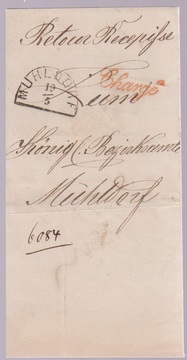 Retour Recepisse
MÜHLDORF
19
5
Chargé
zum
König(. Bezirksamte
Mühldorf
6084